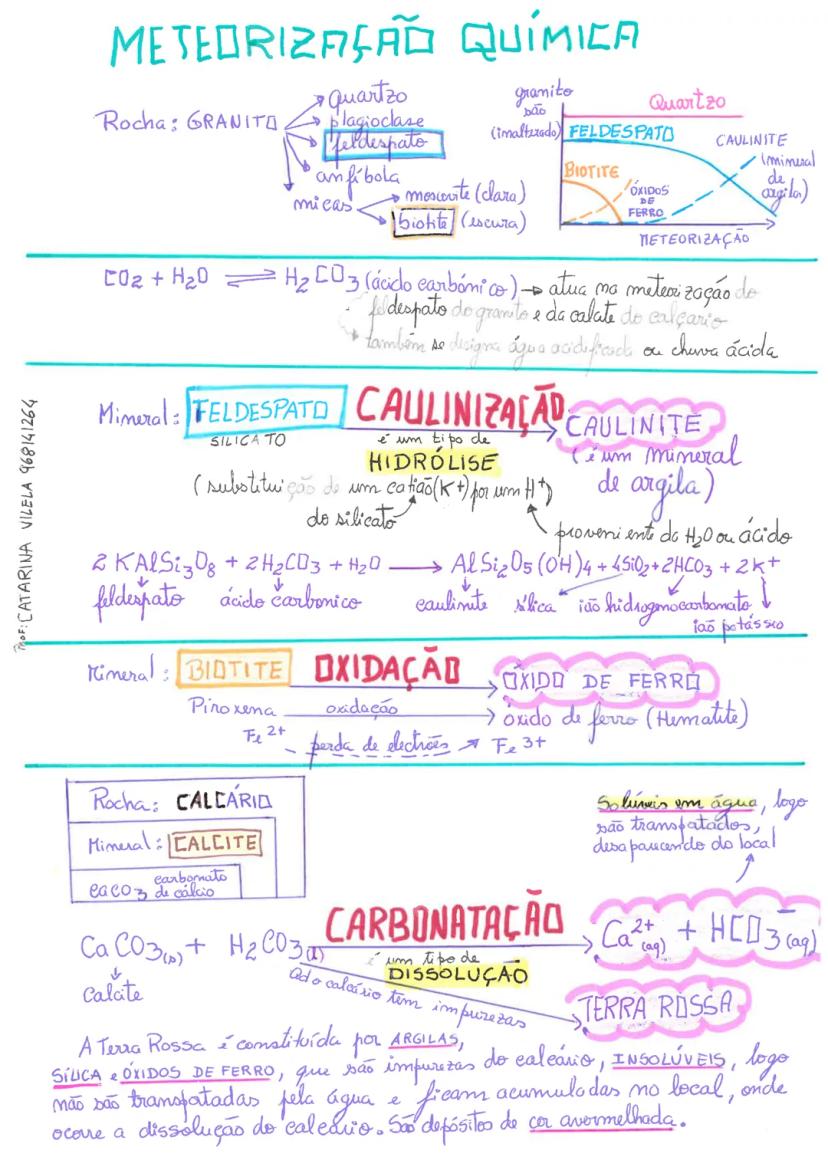 METEORIZAÇÃO QUÍMICA
Rocha: GRANITO
quartzo
plagioclase
feldespato
anfíbola
micas
moscovite (clara)
biotite (escura)
granito
são
(inalterado)
Quartzo
FELDESPATO
CAULINITE
(mineral
de
argila)
BIOTITE
ÓXIDOS
DE
FERRO
METEORIZAÇÃO
CO2 + H2O ⇌ H2CO3 (ácido carbónico) → atua na meteorização do
feldespato do granito e da calcite do calcário
também se designa água acidificada ou chuva ácida
Mineral: FELDESPATO CAULINIZAÇÃO CAULINITE
SILICATO é um tipo de (é um mineral
HIDRÓLISE de argila)
(substituição de um catião (K+) por um H+)
do silicato proveniente da H2O ou ácido
2 KAlSi3O8 + 2H2CO3 + H2O → AlSi2O5(OH)4 + 4SiO2 + 2HCO3 + 2K+
feldespato ácido carbonico caulinite sílica ião hidrogenocarbonato
ião potássio
Prof: CATARINA VILELA 968141264
Mineral: BIOTITE OXIDAÇÃO ÓXIDO DE FERRO
Piroxena oxidação óxido de ferro (Hematite)
Fe2+ perda de electrões Fe3+
Rocha: CALCÁRIO
Mineral: CALCITE
CaCO3 carbonato
de cálcio
Solúveis em água, logo
são transpatados,
desaparecendo do local
CARBONATAÇÃO
CaCO3(s) + H2CO3(l) Ca2+(aq) + HCO3-(aq)
é um tipo de
DISSOLUÇÃO
Calcite
Qdo calcário tem impurezas
TERRA ROSSA
A Terra Rossa é constituída por ARGILAS,
SÍLICA e ÓXIDOS DE FERRO, que são impurezas do calcário, INSOLÚVEIS, logo
não são transpatadas pela água e ficam acumuladas no local, onde
ocorre a dissolução do calcário. São depósitos de cor avermelhada.